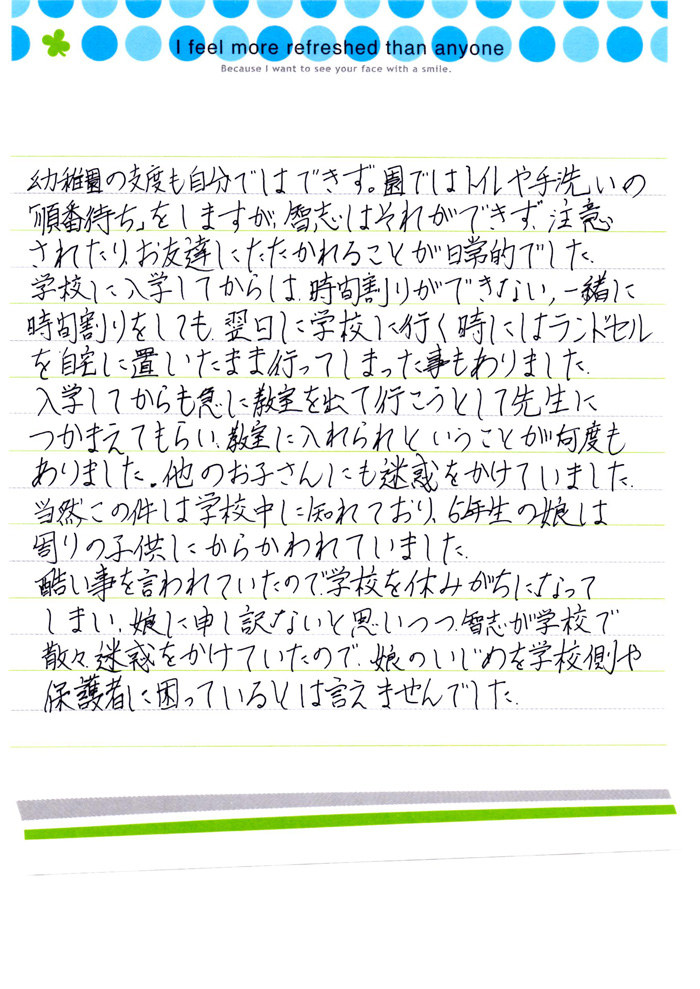 I feel more refreshed than anyone
Because I want to see your face with a smile.
幼稚園の支度も自分ではできず。園ではトイレや手洗いの
「順番待ち」をしますが、智志はそれができず、注意
されたり、お友達にたたかれることが日常的でした。
学校に入学してからは、時間割りができない、一緒に
時間割りをしても、翌日に学校に行く時にはランドセル
を自宅に置いたまま行ってしまった事もありました。
入学してからも急に教室を出て行こうとして先生に
つかまえてもらい、教室に入れられということが何度も
ありました。他のお子さんにも迷惑をかけていました。
当然、この件は学校中に知れており、6年生の娘は
周りの子供にからかわれていました。
酷い事を言われていたので、学校を休みがちになって
しまい、娘に申し訳ないと思いつつ、智志が学校で
散々、迷惑をかけていたので、娘のいじめを学校側や
保護者に困っているとは言えませんでした。